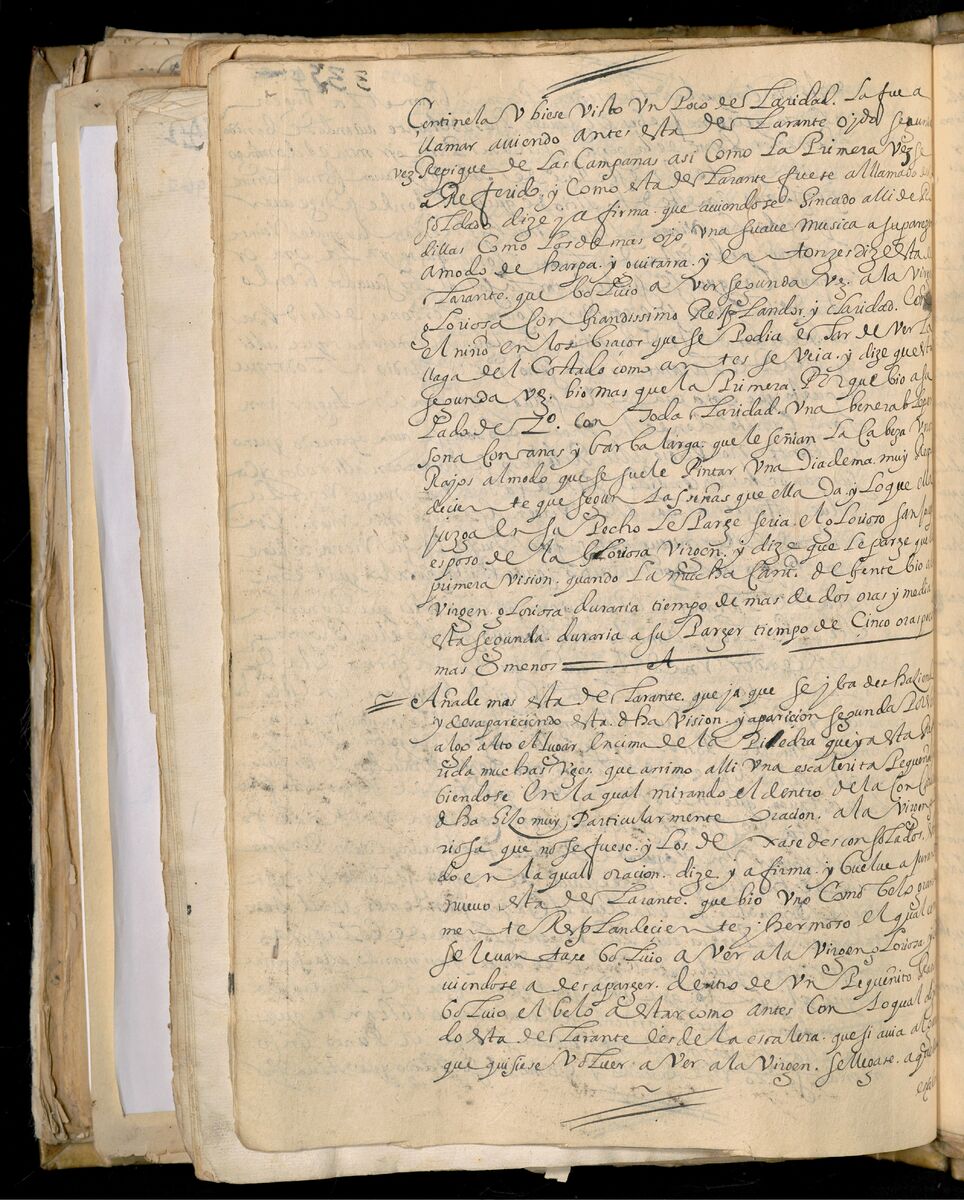 Centinela Vbiese Visto Vn Poco de Claridad. La fue a
llamar aviendo antes esta declarante ojdo segunda
vez Repique de Las Campanas asi Como La Primera Vez se
a Referido, y Como esta declarante fuese a llamado del
soldado dize ya firma. que aviendose Hincado alli de Ro
dillas Como Los demas ojo Vna suave Musica a su parezer
a modo de harpa. y guitarra. y en tonzes dize esta de
clarante. que bolvio a Ver segunda Vez. a la Virgen
gloriosa Con grandissimo Resplandor y claridad. Con
el niño en los braços que se Podia estar de Ver La
llaga del Costado como antes se Veia. y dize que esta
segunda Vez. bio mas que la Primera. Porque bio a su
Lado desz.º. con toda claridad. Vna benerable Per
sona Con canas y barba larga. que le señian La Cabeza Vnos
Rajos al modo que se suele Pintar Vna Diadema. muy Resp
decien te que segun Las señas que ella da. y Lo que ella
juzga en su Pecho Le Parze seria. el glorioso san
esposo de la gloriosa Virgen. y dize que Le parze que la
primera Vision. quando La mucha Cant. de gente bio a la
Virgen gloriosa duraria tiempo de mas de dos oras y media
esta segunda. duraria a su Parzer tiempo de Cinco oras poco
mas o menos
Añade mas esta declarante. que ja que se yba deshaziendo
y desapareciendo esta. dha Vision. y aparicion segunda Por
a lo alto el lugar. Encima de la Piedra que ya esta Refe
rida muchas Vezes. que arrimo alli Vna escalerita Pequeña
biendose En la qual mirando el dentro de la
dha hizo muy Particularmente Oracion. a la Virgen glo
riosa que no se fuese. y Los dexase desconsolados.
do en la qual oracion. dize. y a firma. y buelve a
nuevo esta declarante. que bio Vno Como belo grande
men te Resplandecien te y hermoso el qual
se levan tase bolvio a Ver a la Virgen gloriosa y
viendose a desaparzer. dentro de Vn Pequeñito
bolvio el belo a estar como antes Con Lo qual
do esta declarante desde la escalera. que si avia
que quisiese Volver a Ver a la Virgen. se llegase. a